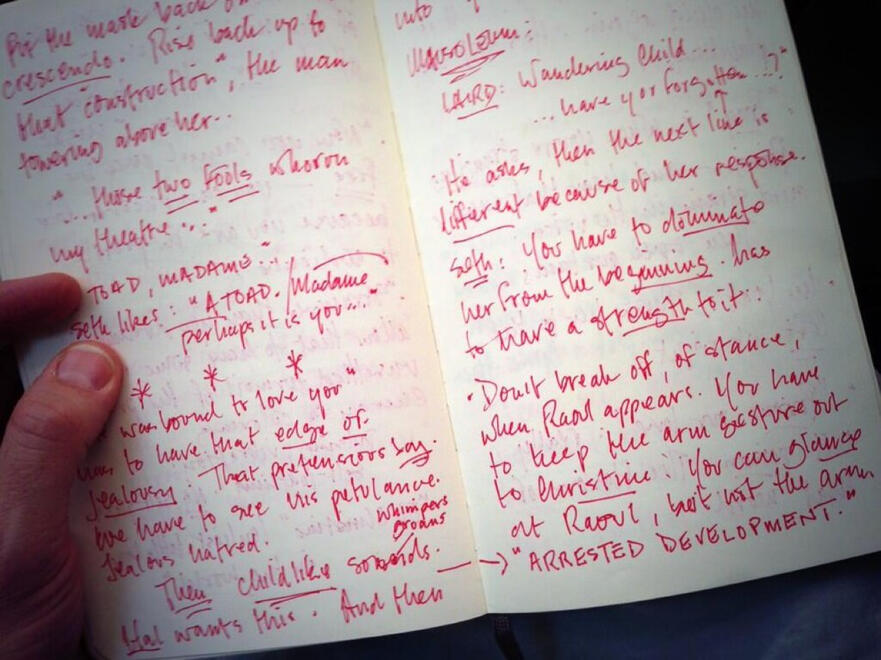 Put the mask back on
crescendo. Rise back up to
that construction", the man
towering above her..
"... those two fools who run
my theatre..."
TOAD, MADAME".
Seth likes: "A TOAD. / Madame
perhaps it is you..."
* * *
was bound to love you"
has to have that edge of
Jealousy. That pretentious boy.
We have to see his petulance.
Jealous hatred.
whimpers
groans
Then childlike sounds.
Hal wants this. And then
into
MAUSOLEUM:
LAIRD: Wandering Child...
...have you forgotten...?"
He asks, then the next line is
different because of her response.
Seth: You have to dominate
her from the beginning. has
to have a strength to it.
· Don't break off, of stance,
when Raoul appears. You have
to keep the arm gesture out
to Christine. You can glance
at Raoul, but not the arm
→ "ARRESTED DEVELOPMENT."